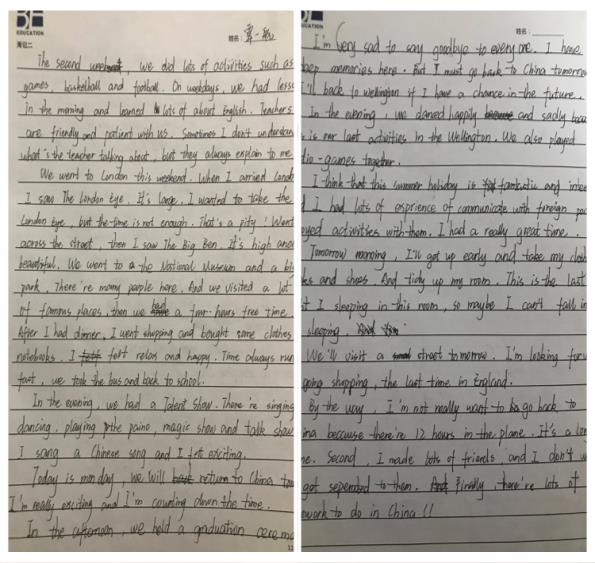 EDUCATION
周记二
姓名:
The second week, we did lots of activities such as
games, basketball and football. On weekdays, we had less
In the morning and learned lots of about English. Teachers
are friendly and patient with us. Sometimes I don't understan
what's the teacher talking about, but they always explain to me
We went to London this weekend. When I arrived Londo
I saw The London Eye. It's large. I wanted to take the
London Eye, but the time is not enough. That's a pity! Went
across the street, then I saw The Big Ben. It's high and
beautiful. We went to the National Museum and a big
park. There're many people here. And we visited a lot
of famous places, then we had a four-hours free time.
After I had dinner, I went shopping and bought some clothes
notebooks. I felt relax and happy. Time always run
fast, we took the bus and back to school.
In the evening, we had a Talent Show. There're singing
dancing, playing the paino, magic show and talk show
I sang a Chinese song and I felt exciting.
Today is monday, we will return to China tom
I'm really exciting and I'm counting down the time.
In the afternoon, we held a graduation ceremo
EDUCATION
姓名:
I'm very sad to say goodbye to everyone. I have
deep memories here. But I must go back to China tomorrow
I'll back to wellington if I have a chance in the future.
In the evening, we danced happily and sadly becau
is our last activities in the Wellington. We also played
dio-games together.
I think that this summer holiday is fantastic and inte
I had lots of exprience of communicate with foreign peo
yed activities with them. I had a really great time.
Tomorrow morning, I'll got up early and take my cloth
es and shoes. And tidy up my room. This is the last
t I sleeping in this room, so maybe I can't fall in
sleeping.
We'll visit a street tomorrow. I'm looking forw
going shopping, the last time in England.
By the way, I'm not really want to go back to
ina becouse there're 12 hours in the plane. It's a lon
me. Second, I made lots of friends, and I don't w
got seperated to them. Finally, there're lots of
ework to do in China!!